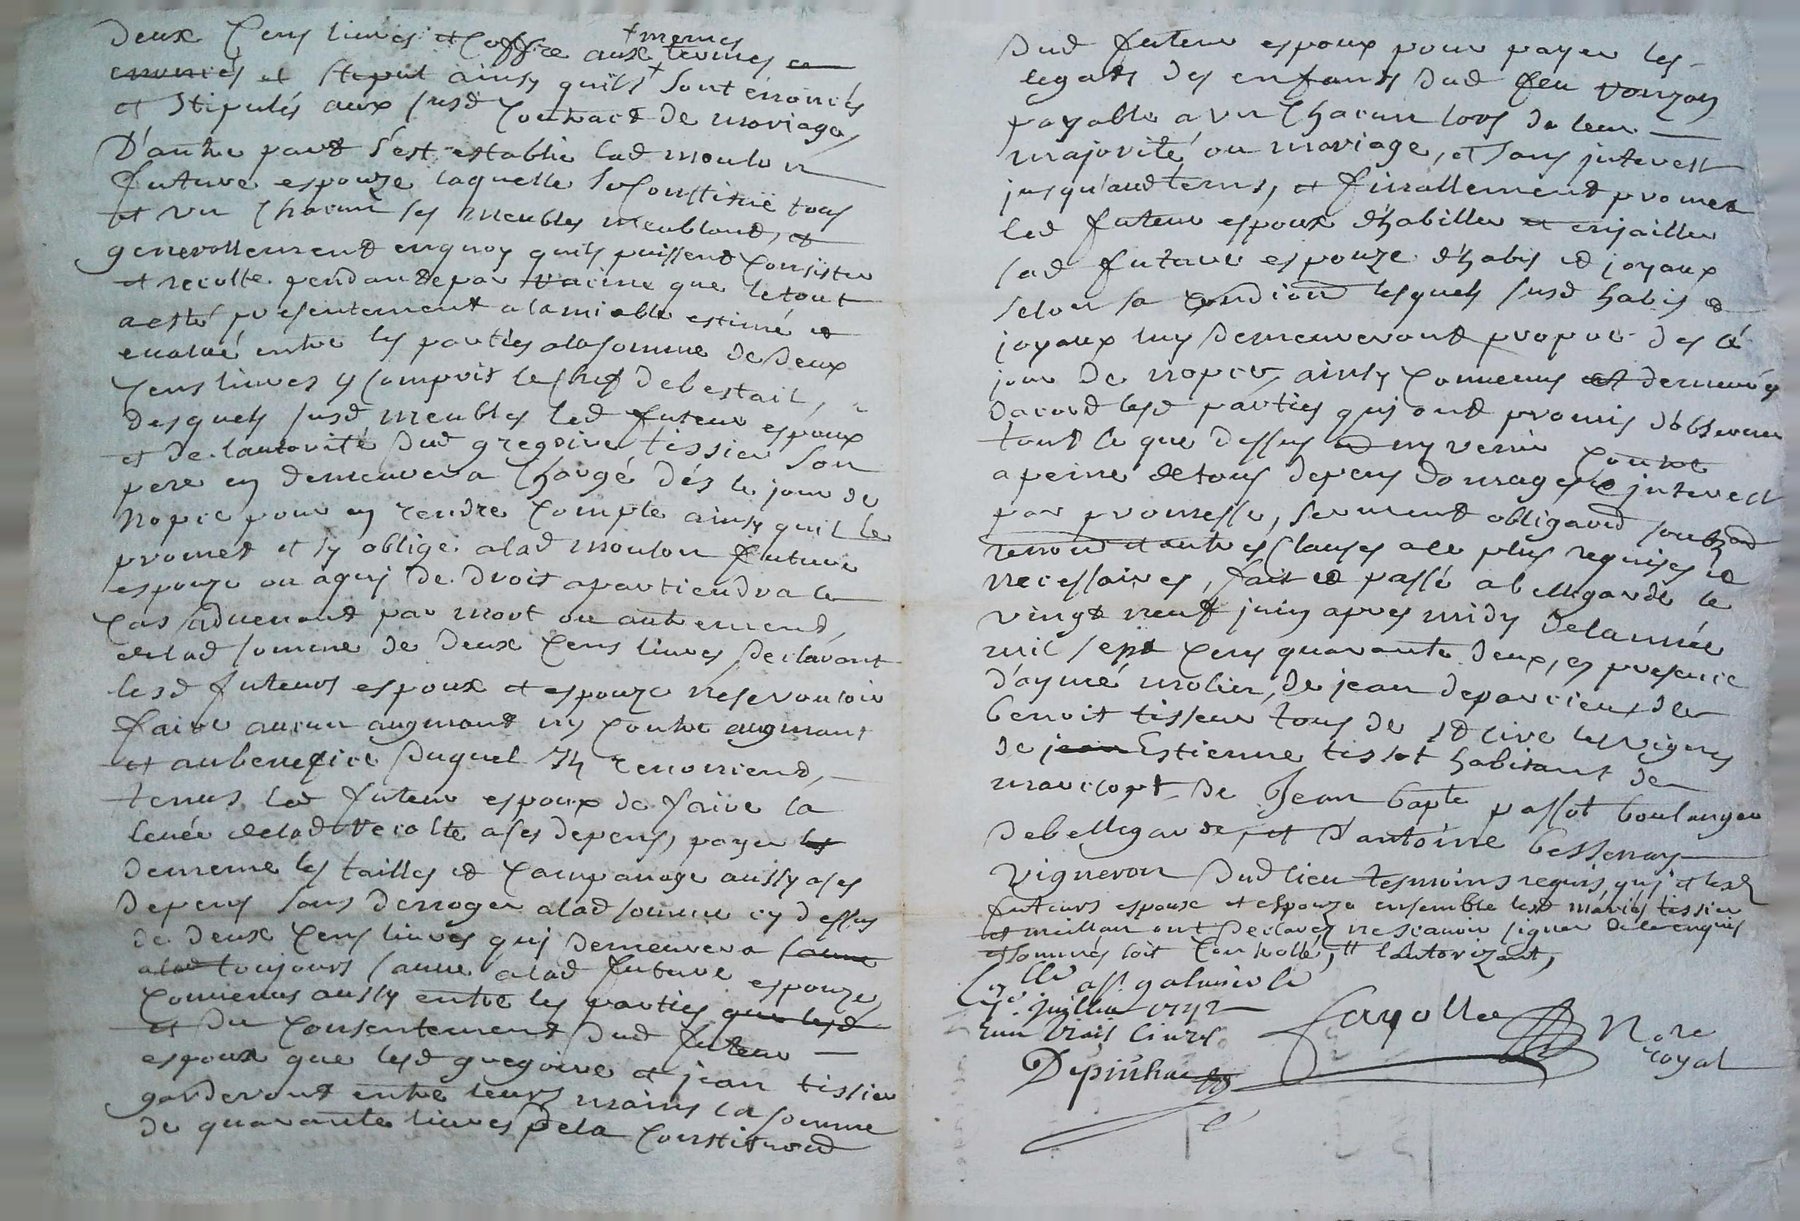 deux cens livres et coffre aux mêmes termes
et stipul ainsy quils sont énoncés
et stipulés aux susd contract de mariage,
D'autre part s'est establie lad moulon
future espouze laquelle se constitue tous
et un chacun ses meubles meublant, et
generallement enquoy quils puissent consister
et recolte pendante par racine que le tout
a esté presentement alamiable estimé et
evalué entre les parties alasomme de deux
cens livres y compris le chef de bestail,
desquels susd meubles led futeur espoux
et de lautorité dud gregoire tissier son
pere en demeurera chargé dès le jour de
nopce pour en rendre compte ainsy quil le
promet et sy oblige alad moulon future
espouze ou aqui de droit apartiendra le
cas advenant par mort ou autrement,
delad somme de deux cens livres, declarant
lesd futeurs espoux et espouze ne se vouloir
faire aucun augmant ny contre augmant
et au benefice duquel ils renoncient,
tenus led futeur espoux de faire la
levée delad recolte ases depens, payer les
dememe les tailles et campanage aussy ases
depens sans derroger alad somme cy dessus
de deux cens livres qui demeurera sauve
alad toujours sauve alad future espouze,
convenus aussy entre les parties que lesd
et du consentement dud futeur
espoux que lesd gregoire et jean tissier
garderont entre leurs mains la somme
de quarante livres dela constituond
dud futeur espoux pour payer les
legats des enfants dud feu
payable a un chacun lors de leur
majorité ou mariage, et sans interest
jusqu'aud tems, et finallement promet
led futeur espoux d'habiller et enjailler
lad future espouze d'habis et joyaux
selon sa condion lesquels susd habis et
joyaux luy demeureront propres des le
jour de nopces, ainsy convenus et demeurés
dacord lesd parties qui ont promis d'observer
tout ce que dessus et ny venir contre
a peine de tous depens domages et interest
par promesse, serment obligaond soubmond
renond et autres clauses ale plus requises et
necessaires, fait et passé a bellegarde le
vingt neuf juin apres midy delannée
mil sept cens quarante deux, en presence
d'aymé molier, de jean deparcieux de
benoit tisseur tous de st cire les vignes
de jean Estienne tissot habitant de
maricopt de Jean bapte passot boulanger
debellegarde, et d'antoine bessenay
vigneron dud lieu tesmoins requis, qui et lesd
futeurs espoux et espouze ensemble lesd mariés tissier
et meillan ont declarez ne scavoir signer de ce enquis
et sommés soit controllé, et lautorizant,
Collé a st galmier le
7e juillet 1742
reçu trois livres
Fayolle Nore
royal